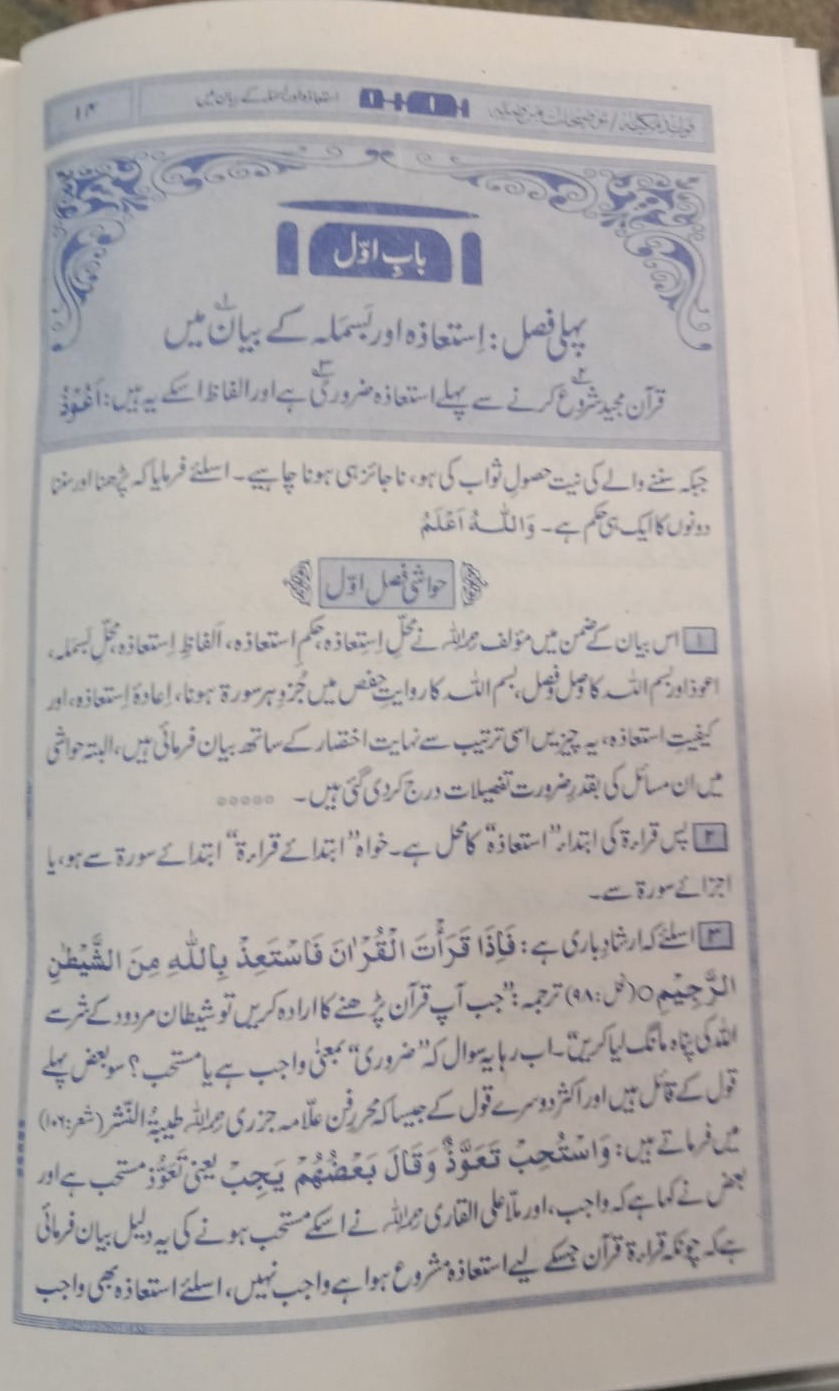 فوائد مکیہ / توضیحات مرضیہ استعاذہ اور بسملہ کے بیان میں ۱۴
بابِ اوّل
پہلی فصل: اِستعاذہ اور بَسمَلہ کے بیان۱ میں
قرآن مجید شروع۲ کرنے سے پہلے استعاذہ ضروری۳ ہے اور الفاظ اسکے یہ ہیں: اَعُوْذُ
جبکہ سننے والے کی نیت حصولِ ثواب کی ہو، ناجائز ہی ہونا چاہیے۔ اسلئے فرمایا کہ پڑھنا اور سننا
دونوں کا ایک ہی حکم ہے۔ وَاللّٰہُ اَعْلَمُ
حواشی فصل اوّل
۱ اس بیان کے ضمن میں مؤلف رحمہ اللہ نے محلِّ اِستعاذہ، حکمِ اِستعاذہ، اَلفاظِ اِستعاذہ، محلِّ بَسمَلہ،
اعوذ اور بسم اللہ کا وصل وفصل، بسم اللہ کا روایتِ حفص میں جُزوِ ہر سورۃ ہونا، اِعادۂ اِستعاذہ، اور
کیفیتِ استعاذہ، یہ چیزیں اسی ترتیب سے نہایت اختصار کے ساتھ بیان فرمائی ہیں، البتہ حواشی
میں ان مسائل کی بقدرِ ضرورت تفصیلات درج کر دی گئی ہیں۔ ۝۝۝۝۝
۲ پس قراءۃ کی ابتداء ”استعاذہ“ کا محل ہے۔ خواہ ”ابتدائے قراءۃ“ ابتدائے سورۃ سے ہو، یا
اجزائے سورۃ سے۔
۳ اسلئے کہ ارشادِ باری ہے: فَاِذَا قَرَأْتَ الْقُرْاٰنَ فَاسْتَعِذْ بِاللّٰهِ مِنَ الشَّيْطٰنِ
الرَّجِيْمِ ۝ (نحل: ۹۸) ترجمہ: ”جب آپ قرآن پڑھنے کا ارادہ کریں تو شیطان مردود کے شر سے
اللہ کی پناہ مانگ لیا کریں“۔ اب رہا یہ سوال کہ ”ضروری“ بمعنیٰ واجب ہے یا مستحب؟ سو بعض پہلے
قول کے قائل ہیں اور اکثر دوسرے قول کے جیسا کہ محررِ فن علّامہ جزری رحمہ اللہ طیبۃُ النّشر (شعر: ۱۰۶)
میں فرماتے ہیں: وَاسْتُحِبْ تَعَوُّذٌ وَقَالَ بَعْضُهُمْ يَجِبْ یعنی تَعَوُّذ مستحب ہے اور
بعض نے کہا ہے کہ واجب، اور ملّا علی القاری رحمہ اللہ نے اسکے مستحب ہونے کی یہ دلیل بیان فرمائی
ہے کہ چونکہ قراءۃ قرآن جسکے لیے استعاذہ مشروع ہوا ہے واجب نہیں، اسلئے استعاذہ بھی واجب